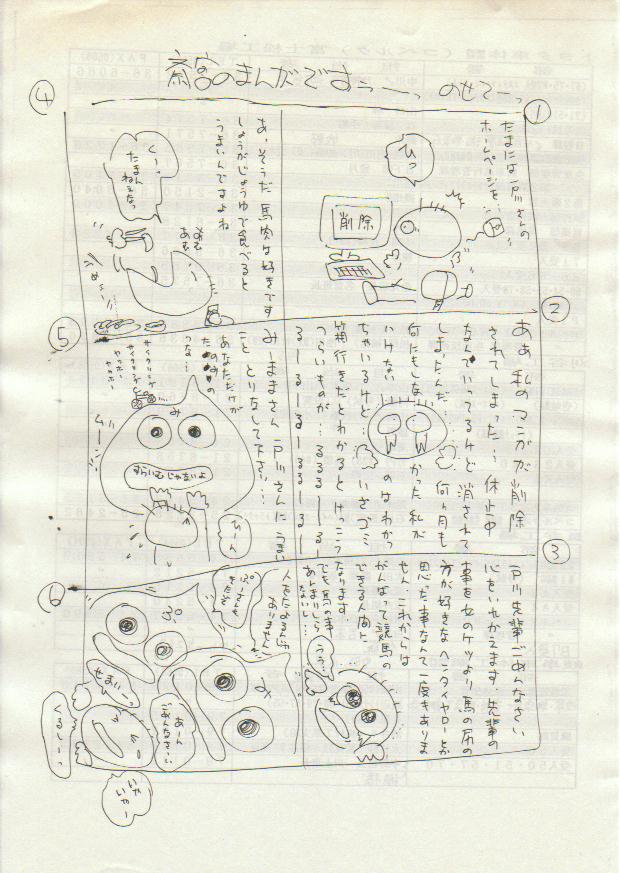 斎宮のまんがですぅーーっ のせてーっ
①
たまには戸川さんの
ホームページを…
ひっ
削除
②
ああ 私のマンガが削除
されてしまった… 休止中
なんていってるけど 消されて
しまったんだ…… 何ヶ月も
何にもしなかった私が
いけない のはわかっ
ちゃいるけど… いざゴミ
箱行きだとわかると けっこう
つらいものが… るるるーるるー
るーるーるーるるーるるー
③
戸川先輩 ごめんなさい
心をいれかえます。先輩の
事を女のケツより馬の尻の
方が好きなヘンタイヤローとか
思った事なんて一度もありま
せん。これからは
がんばって競馬の
できる人間に
なります。
でも馬の事
あんまりしら
ないし…
うう…
④
あ、そうだ 馬肉は好きです
しょうがじょうゆで食べると
うまいんですよね
くーっ
たまん
ねえなっ
⑤
みーままさん 戸川さんにうまい
こと とりなして下さい…
あなただけが
たのみの
つな…
サイクリング
サイクリング
ヤッホー
ヤッホー
み
ムーン
すらいむじゃないよ
ひーん
⑥
人をたよるんじゃ
ありません
ぷーさんも
きたぞ
ぷ
み
せまい
あーん
ごめんなさい
くるしーっ
いや
いやー